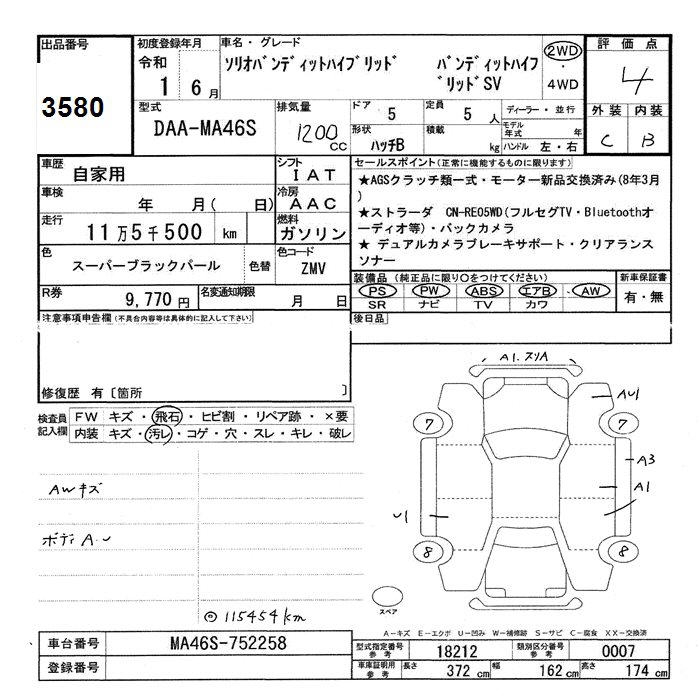 出品番号
3580
初度登録年月
令和
1 6月
車名・グレード
ソリオバンディットハイブリッド バンディットハイブ
リッドSV
2WD
・
4WD
評価点
4
型式
DAA-MA46S
排気量
1200
CC
ドア
5
定員
5 人
ディーラー・並行
形状
ハッチB
積載
kg
モデル
年式 年
ハンドル 左・右
外装 内装
C B
車歴
自家用
シフト
IAT
セールスポイント(正常に機能するものに限ります)
車検
年 月( 日)
冷房
AAC
★AGSクラッチ類一式・モーター新品交換済み(8年3月
)
走行
11万5千500 km
燃料
ガソリン
★ストラーダ CN-RE05WD(フルセグTV・Bluetoothオ
ーディオ等)・バックカメラ
★ デュアルカメラブレーキサポート・クリアランス
ソナー
色
スーパーブラックパール
色替
色コード
ZMV
装備品(純正品に限り○をつけてください)
新車保証書
PS PW ABS エアB AW
SR ナビ TV カワ
有・無
R券
9,770円
名変通知期限
月 日
注意事項申告欄(不具合内容等は具体的に記入して下さい)
後日品
修復歴 有〔箇所 〕
検査員
記入欄
FW キズ・飛石・ヒビ割・リペア跡・×要
内装 キズ・汚レ・コゲ・穴・スレ・キレ・破レ
AWキズ
ボディA〜
◎115454km
A1.スリA
AU1
7 7
A3
A1
U1
8 8
スペア
A−キズ E−エクボ U−凹み W−補修跡 S−サビ C−腐食 XX−交換済
車台番号
MA46S-752258
型式指定番号
参考
18212
類別区分番号
参考
0007
登録番号
車庫証明用
参考
長さ 372 cm 幅 162 cm 高さ 174 cm